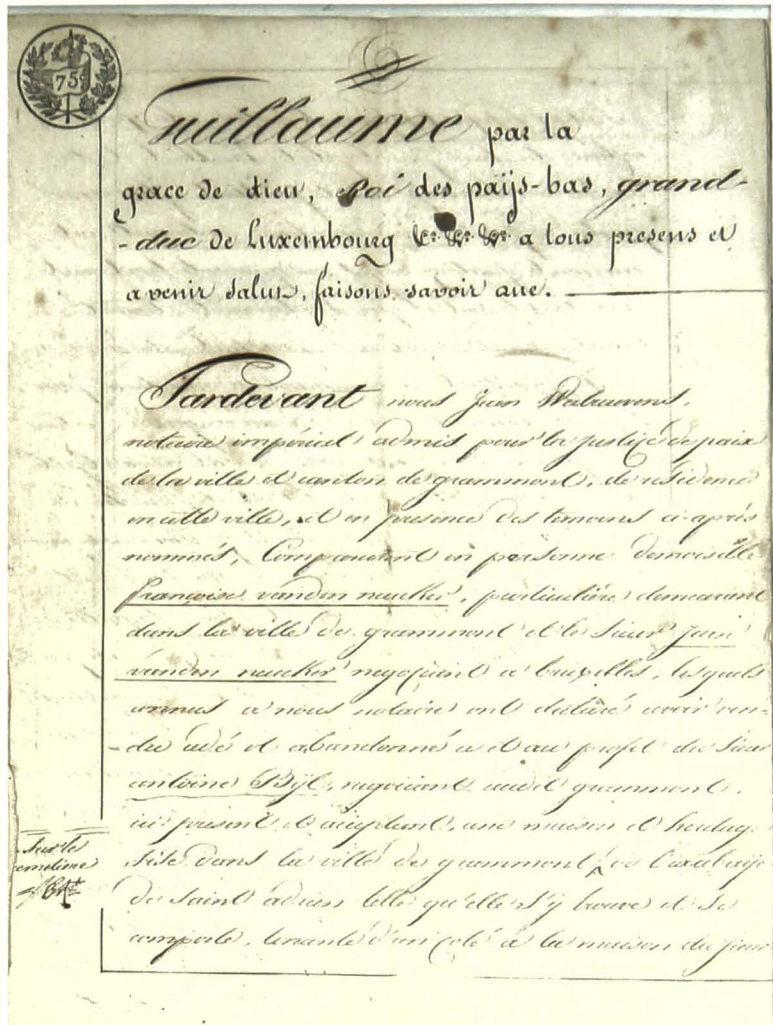 75c
Guillaume par la
grace de dieu, Roi des païjs-bas, grand-
-duc de Luxembourg &c. &c. &c. a tous presens et
avenir salut, faisons savoir que.
Pardevant nous Jean
notaire impérial admis pour la justice de paix
de la ville et canton de grammont, de residence
en cette ville, et en presence des temoins ci-après
nommés, Comparurent en personne demoiselle
françoise vanden neucker, particulière demeurant
dans la ville de grammont et le sieur
vanden neucker negociant a bruxelles, lesquels
connus a nous notaire ont déclaré avoir ven-
-du cédé et abandonné a et au profit du sieur
antoine Bijl, negociant audit grammont,
ici présent et acceptant, une maison et heritage
sise dans la ville de grammont ^ de l'exabaÿe
de saint adrien telle qu'elle s'y trouve et se
comporte, tenante d'un coté à la maison du sieur
Sur le